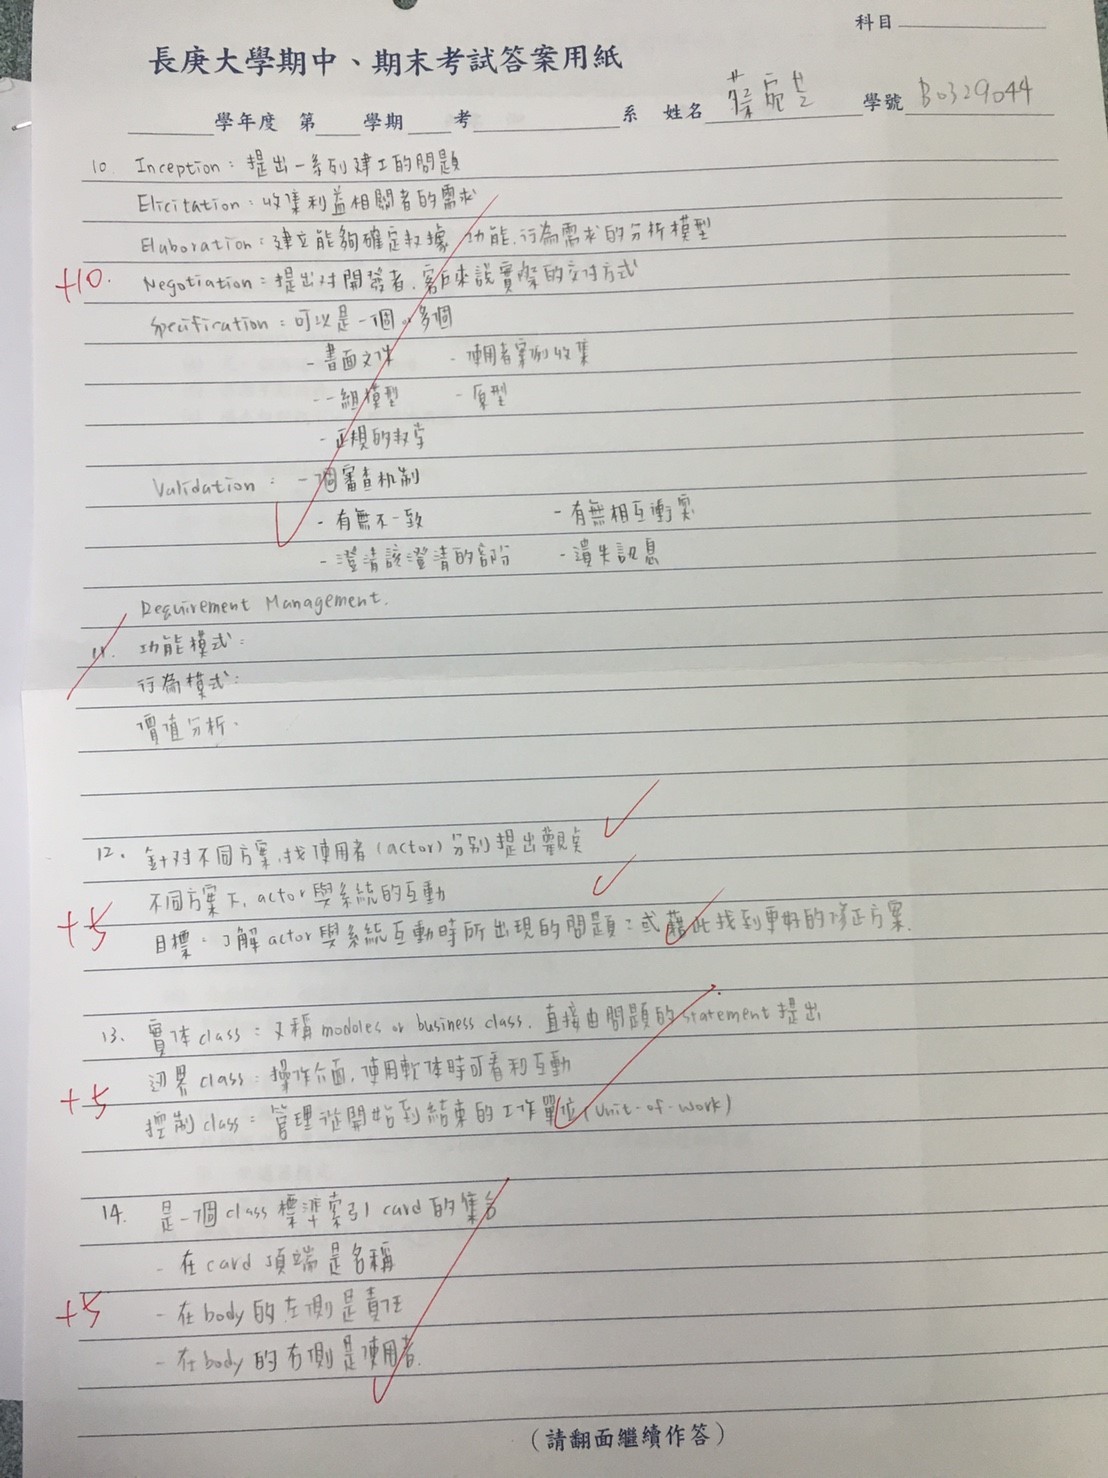 科目
長庚大學期中、期末考試答案用紙
學年度 第 學期 考 系 姓名 蔡宛芝 學號 B0329044
10. Inception：提出一系列建立的問題
Elicitation：收集利益相關者的需求
Elaboration：建立能夠確定數據、功能、行為需求的分析模型
+10. Negotiation：提出对開發者、客戶來說實際的交付方式
Specification：可以是一個 or 多個
- 書面文件 - 使用者案例收集
- 一組模型 - 原型
- 正規的数学
Validation： 一個審查机制
- 有無不一致 - 有無相互衝突
- 澄清該澄清的部份 - 遺失訊息
Requirement Management.
11. 功能模式：
行為模式：
價值分析.
12. 針对不同方案,找使用者(actor)分别提出觀点
不同方案下, actor與系統的互動
+5 目標：了解actor與系統互動時所出現的問題；或藉此找到更好的修正方案.
13. 實体class：又稱modoles or business class, 直接由問題的statement提出
+5 边界class：操作介面,使用軟体時可看和互動
控制class：管理從開始到結束的工作單位(Unit-of-work)
14. 是一個class標準索引card的集合
- 在card頂端是名稱
+5 - 在body的左側是責任
- 在body的右側是使用者.
(請翻面繼續作答)